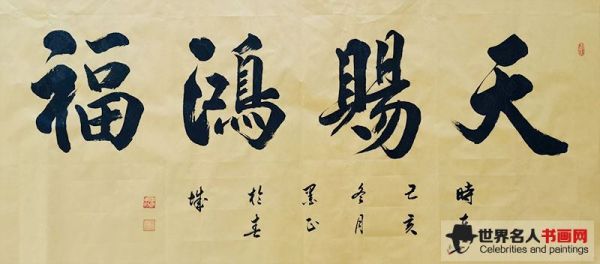 天賜鴻福
時在
己亥
冬月
於春
城
世界名人书画网
Celebrities and paintings